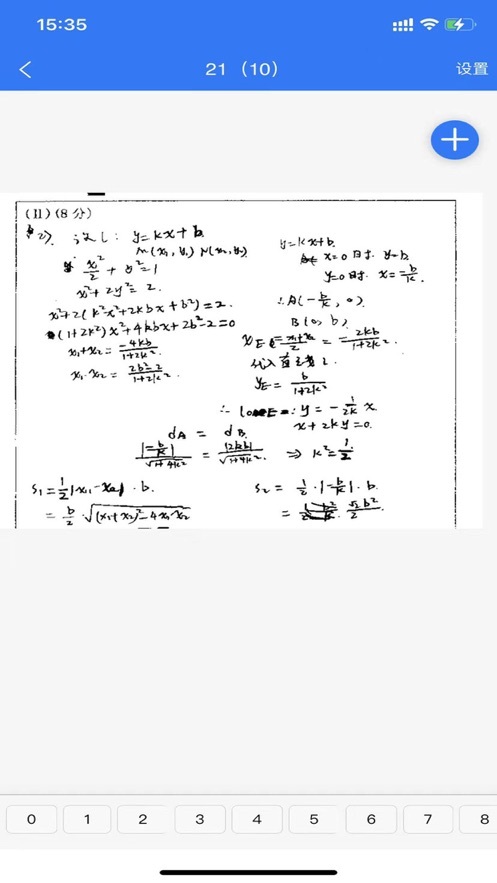 15:35
21（10）
设置
(II)(8分)
(2) 设 l: y=kx+b.
M(x₁, y₁) N(x₂, y₂)
x²/2 + y²=1
x²+2y²=2.
x²+2(k²x²+2kbx+b²)=2.
(1+2k²)x²+4kbx+2b²-2=0
x₁+x₂=-4kb/1+2k².
x₁·x₂=2b²-2/1+2k².
y=kx+b.
x=0时. y=b.
y=0时. x=-b/k.
∴A(-b/k, 0).
B(0, b).
x_E=x₁+x₂/2=-2kb/1+2k².
y_E=b/1+2k²
y=-1/2k x.
x+2ky=0.
d_A = d_B.
|-b/k|/√1+4k² = |2kb|/√1+4k². ⇒ k²=1/2
S₁=1/2|x₁-x₂|·b.
=b/2·√(x₁+x₂)²-4x₁x₂
S₂=1/2·|-b/k|·b.
=√2b²/2.
0 1 2 3 4 5 6 7 8